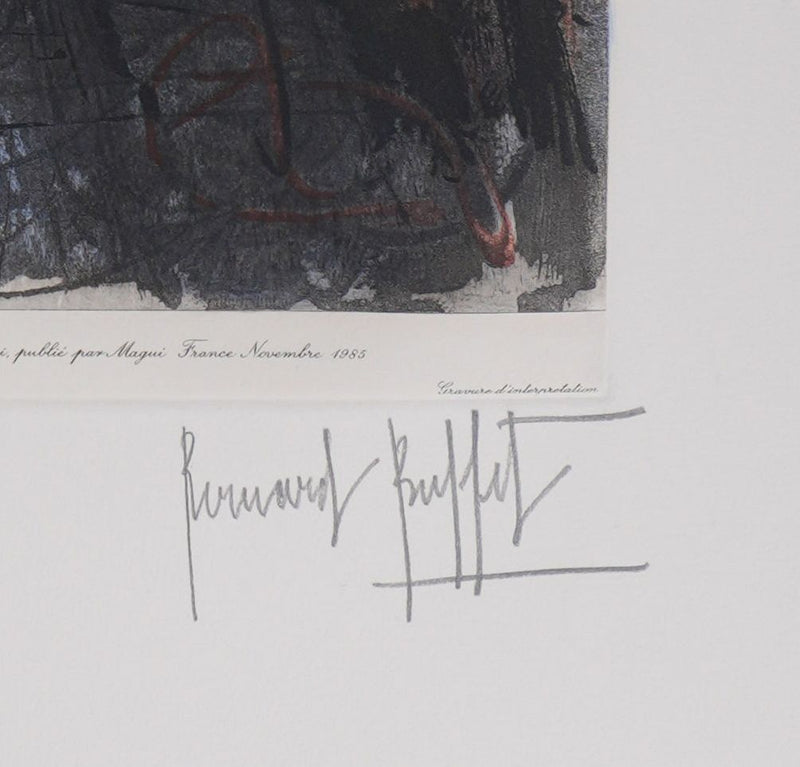 i, publié par Magui France Novembre 1985
Gravure d'interprétation
Bernard Buffet